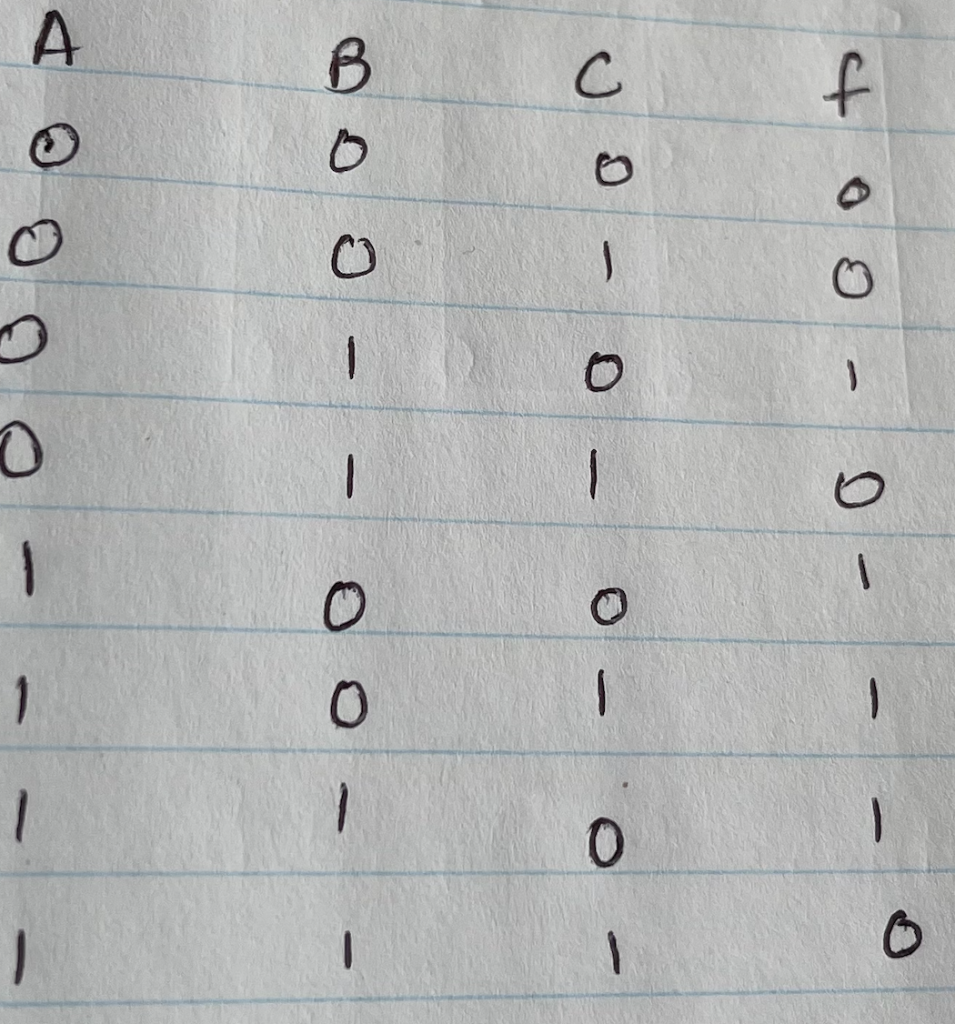 A B C f
0 0 0 0
0 0 1 0
0 1 0 1
0 1 1 0
1 0 0 1
1 0 1 1
1 1 0 1
1 1 1 0